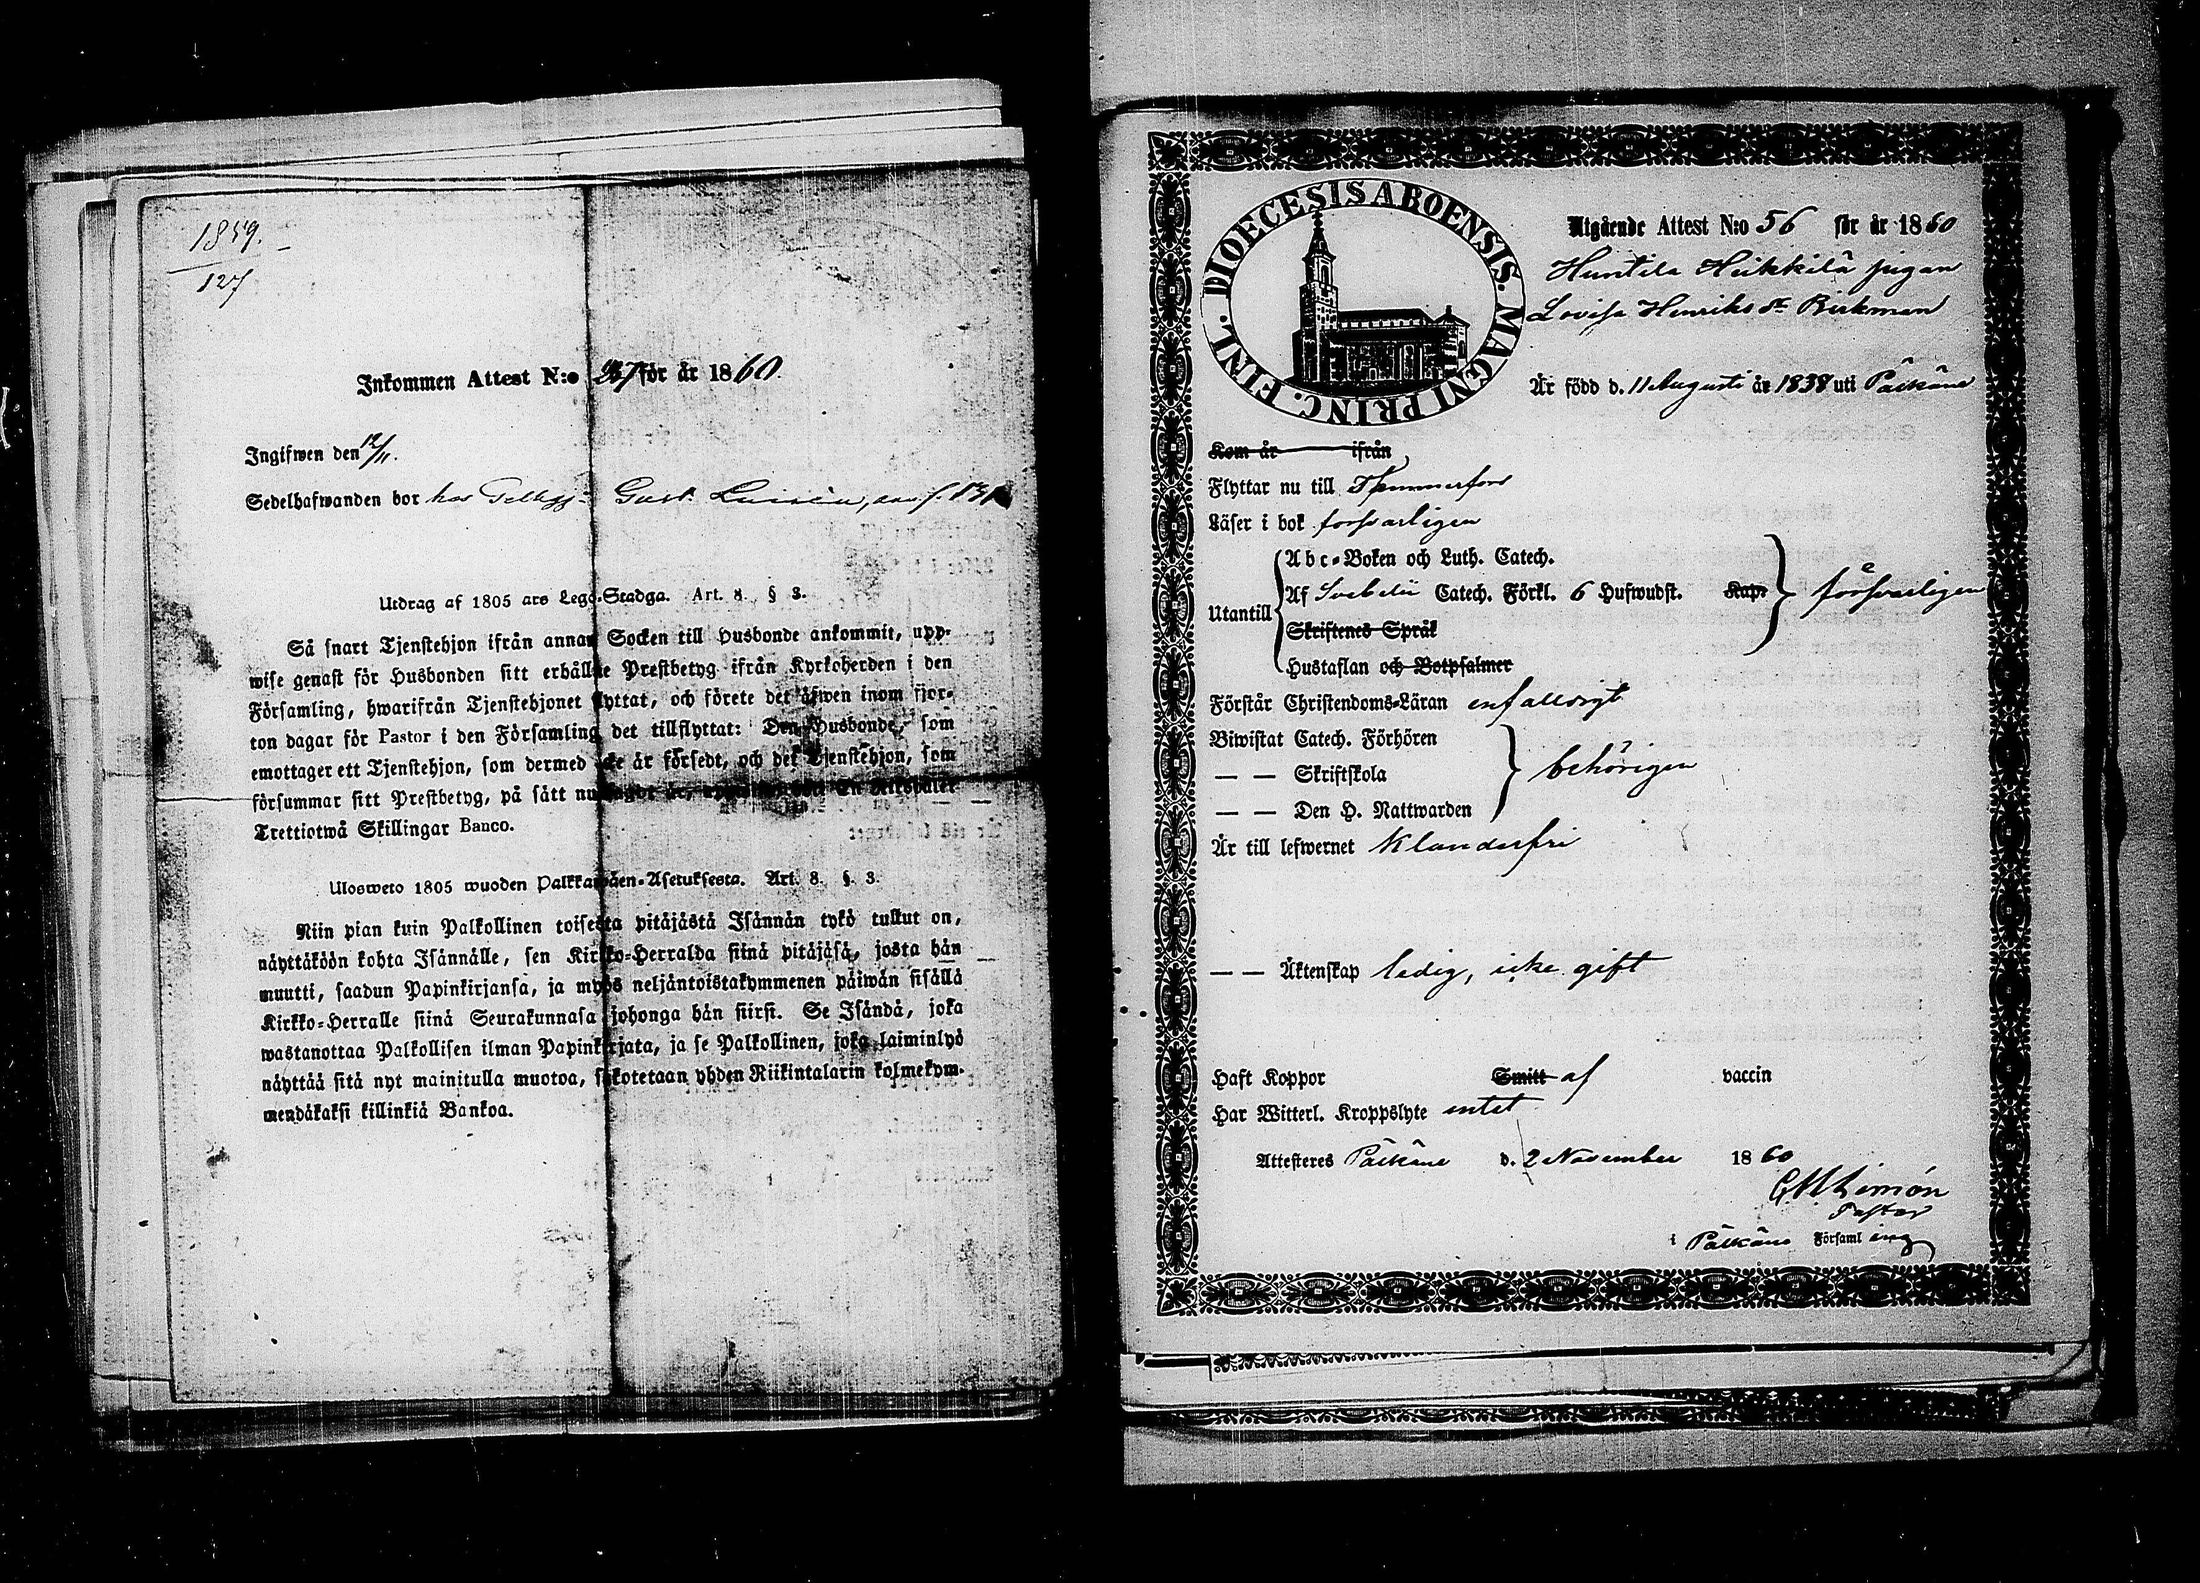 1859.
127
Inkommen Attest N:o 227 för år 1860.
Ingifwen den 12/11.
Sedelhafwanden bor hos Gust.
Utdrag af 1805 ars Lego-Stadga. Art. 8. § 3.
Så snart Tjenstehjon ifrån annan Socken till Husbonde ankommit, upp-
wise genast för Husbonden sitt erhållne Prestbetyg ifrån Kyrkoherden i den
Församling, hwarifrån Tjenstehjonet flyttat, och förete det äfwen inom fjor-
ton dagar för Pastor i den Församling det tillflyttat: Den Husbonde, som
emottager ett Tjenstehjon, som dermed icke är försedt, och det Tjenstehjon, som
försummar sitt Prestbetyg, på sätt nu En Riksdaler
Trettiotwå Skillingar Banco.
Ulosweto 1805 wuoden Palkkawäen-Asetuksesta. Art. 8. §. 3.
Niin pian kuin Palkollinen toisesta pitäjästä Isännän tykö tullut on,
näyttäköön kohta Isännälle, sen Kirkko-Herralda siinä pitäjäsä, josta hän
muutti, saadun Papinkirjansa, ja myös neljäntoistakymmenen päiwän sisällä
Kirkko-Herralle siinä Seurakunnasa johonga hän siirsi. Se Isändä, joka
wastanottaa Palkollisen ilman Papinkirjata, ja se Palkollinen, joka laiminlyö
näyttää sitä nyt mainitulla muotoa, sakotetaan yhden Riikintalarin kolmekym-
mendäkaksi killinkiä Bankoa.
DIOECESIS ABOENSIS. MAGNI PRINC. FINL.
Utgående Attest N:o 56 för år 1860
Huntila Heikkilä pigan
Lovisa Henriks dr Birkman
Är född d. 11 Augusti år 1838 uti Pälkäne
Kom år ifrån
Flyttar nu till Tammerfors
Läser i bok försvarligen
Abc-Boken och Luth. Catech.
Utantill Af Svebelii Catech. Förkl. 6 Hufwudst. Kap. försvarligen
Skriftenes Språk
Hustaflan och Botpsalmer
Förstår Christendoms-Läran enfaldigt
Biwistat Catech. Förhören
— — Skriftskola behörigen
— — Den H. Nattwarden
Är till lefwernet Klanderfri
— — Äktenskap ledig, icke gift
Haft Koppor Smitt af vaccin
Har Witterl. Kroppslyte intet
Attesteres Pälkäne d. 2 November 1860
G. M. Limón
Pastor
i Pälkäne Församling